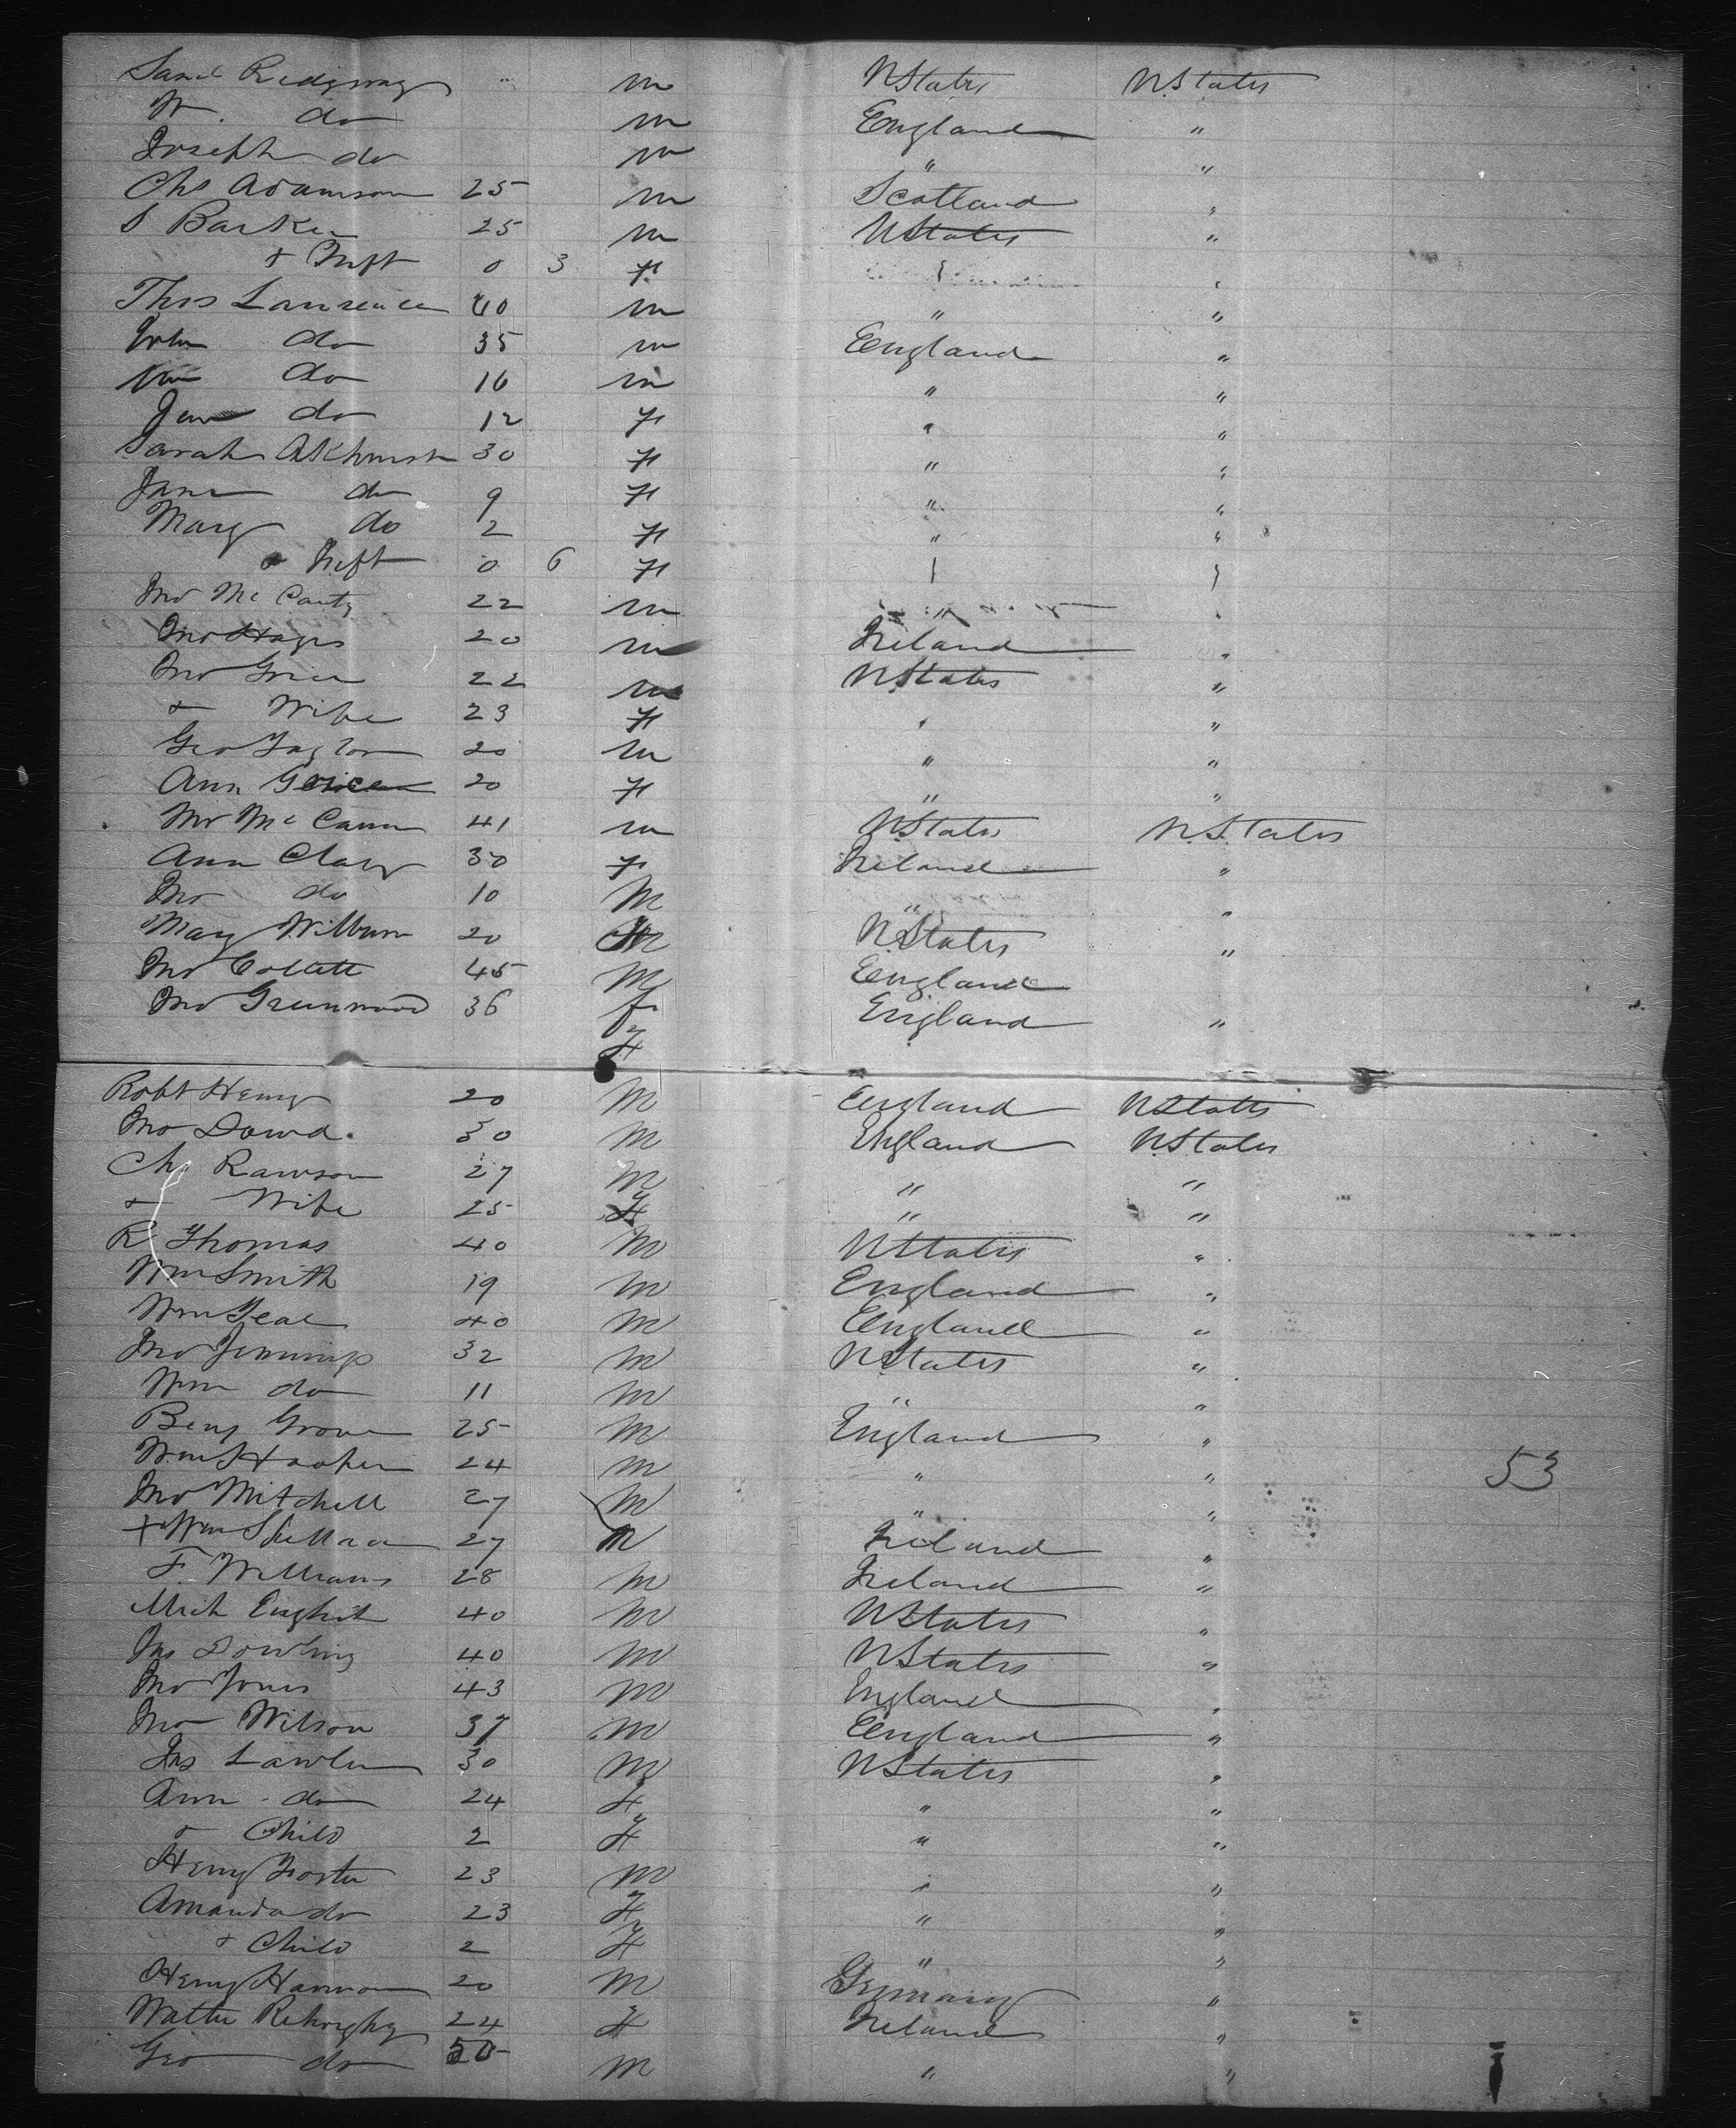 Saml Ridgway " m UStates U.States
W. do m England "
Joseph do m " "
Chs Adamson 25 m Scotland "
S Barker 25 m UStates "
+ Inft 0 3 f "
Thos Lawrence 40 m " "
John do 35 m England "
Wm do 16 m " "
Jane do 12 f " "
Sarah Akhurst 30 f " "
Jane do 9 f " "
Mary do 2 f " "
Inft 0 6 f
Jno McCarty 22 m " "
Jno Hayes 20 m Ireland "
Jno Grice 22 m UStates "
+ Wife 23 f " "
Geo Taylor 20 m " "
Ann Grice 20 f " "
Mr McCann 41 m UStates U.States
Ann Clary 30 f Ireland "
Jno do 10 M " "
Mary Wilburn 20 UStates "
Jno Collett 45 M England
Jno Greenwood 36 f England "
f
Robt Henry 20 M England UStates
Jno Dowd. 30 M England UStates
Chs Rawson 27 M " "
+ Wife 25 f " "
R Thomas 40 M UStates "
Wm Smith 19 M England "
Wm Teal 40 M England "
Jno Jennings 32 M UStates "
Wm do 11 M " "
Benj Grove 25 M England "
Wm Hooper 24 M " " 53
Jno Mitchell 27 M " "
+ Wm 27 M Ireland "
F. Williams 28 M Ireland "
Mich English 40 M UStates "
Jas Dowling 40 M UStates "
Jno Jones 43 M England "
Jno Wilson 37 M England "
Jas Lawler 30 M UStates "
Ann do 24 f " "
+ Child 2 f " "
Henry Foster 23 M " "
Amanda do 23 f " "
+ Child 2 f " "
Henry Harmon 20 M Germany "
Walter 24 f Ireland "
Geo do 50 M " "